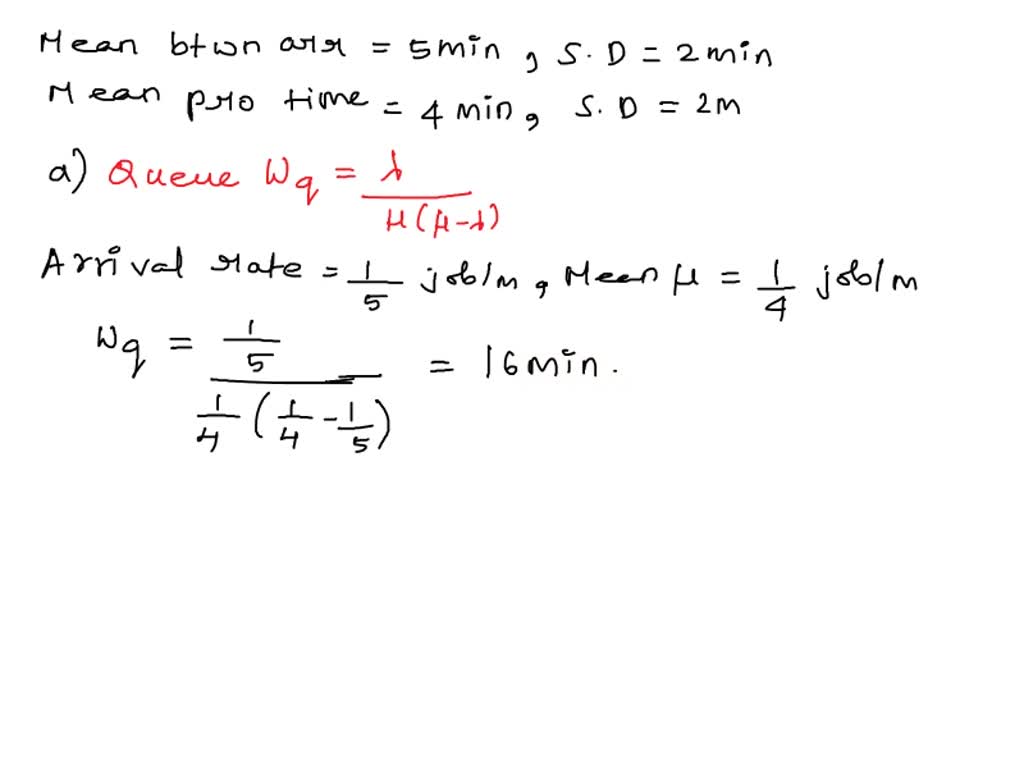 Mean btwn arr = 5min, S.D = 2min
Mean pro time = 4min, S.D = 2m
a) Queue Wq = λ / μ(μ-λ)
Arrival rate = 1/5 job/m, Mean μ = 1/4 job/m
Wq = 1/5 / 1/4 (1/4 - 1/5) = 16min.